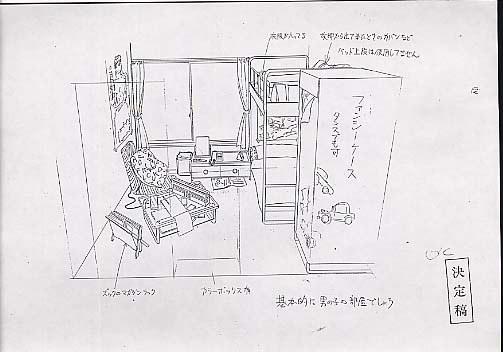 衣服が入ってる
衣かけから出てきたときのカバンなど
ベッド上段は使用してません
ファンシーケース
タンスでも可
ズックのマガジンラック
カラーボックス
基本的に男の子の部屋でしょう
OK
決定稿